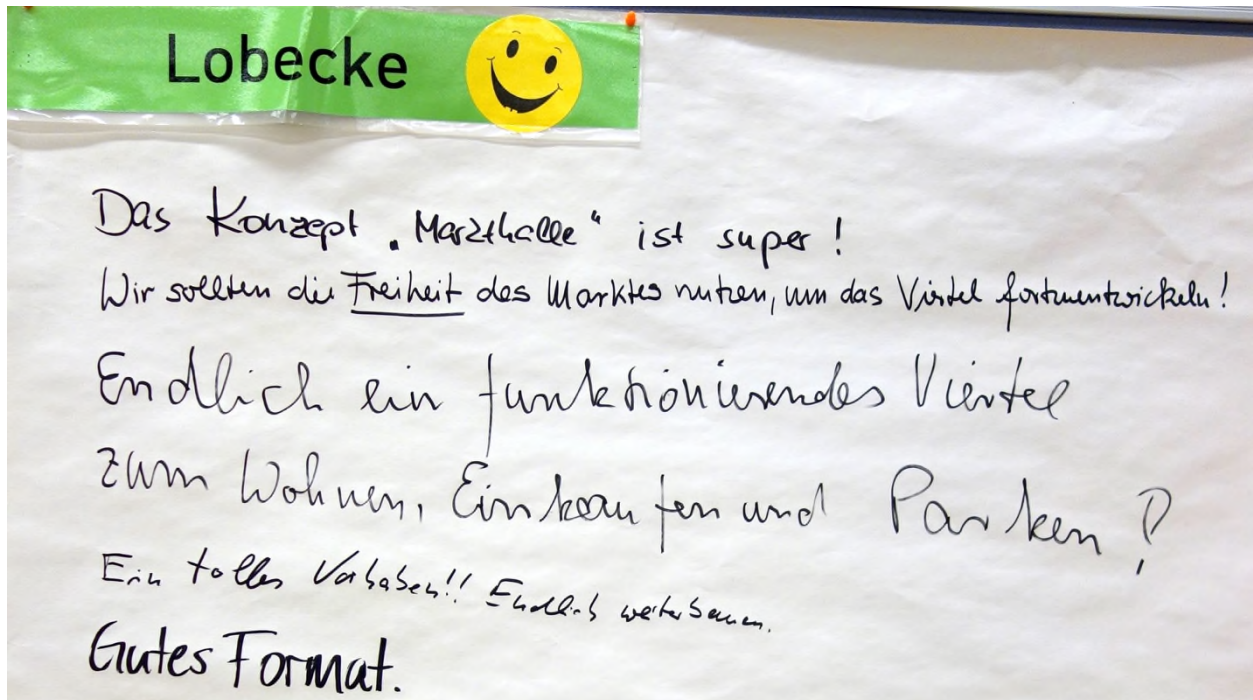 Lobecke
Das Konzept „Markthalle“ ist super!
Wir sollten die Freiheit des Marktes nutzen, um das Viertel fortzuentwickeln!
Endlich ein funktionierendes Viertel
zum Wohnen, Einkaufen und Parken?
Ein tolles Vorhaben!! Endlich weiterbauen.
Gutes Format.